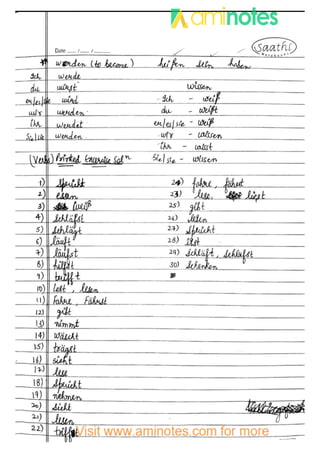 aminotes
Date ..... / ..... / .........
Saathi
* werden (to become) heißen sein haben
Ich werde
du wirst wissen
er/es/sie wird Ich - weiß
wir werden du - weißt
Ihr werdet er/es/sie - weiß
Sie/sie werden wir - wissen
Ihr - wisst
(Verbs) Printed Exercise Solⁿ Sie/sie - wissen
1) Spricht 24) fahre, fährst
2) essen 23) lese, liegt
3) weiß 25) gibt
4) schläfst 26) lesen
5) schlägt 27) spricht
6) läuft 28) isst
7) läufst 29) schläft, schläfst
8) hilfst 30) schenken
9) trifft
10) lest, lesen
11) Fahre, Fährst
12) gibt
13) nimmt
14) wäscht
15) trägst
16) sieht
17) lese
18) spricht
19) nehmen
20) sieht
21) lesen
22) triffst
Visit www.aminotes.com for more